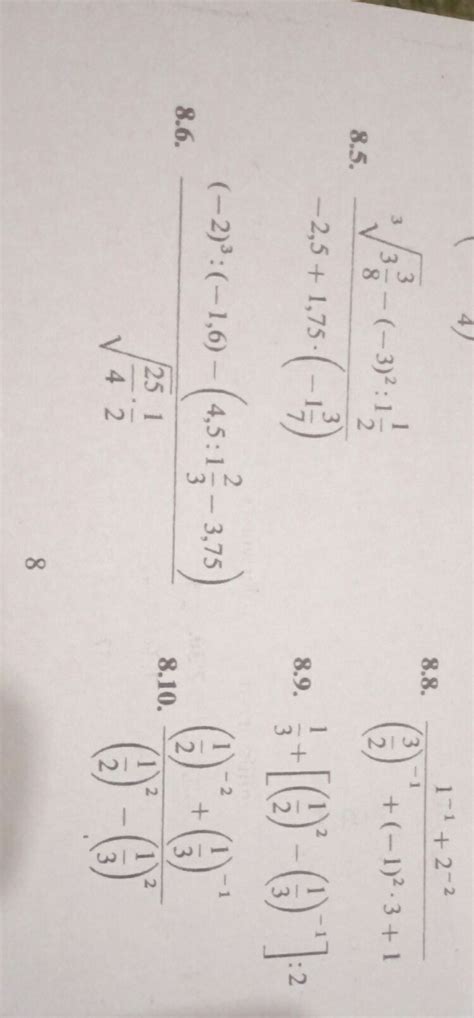 4)
8.5. \frac{\sqrt[3]{3\frac{3}{8}} - (-3)^2 : 1\frac{1}{2}}{-2,5 + 1,75 \cdot \left(-1\frac{3}{7}\right)}
8.6. \frac{(-2)^3 : (-1,6) - \left(4,5 : 1\frac{2}{3} - 3,75\right)}{\sqrt{\frac{25}{4}} \cdot \frac{1}{2}}
8.8. \frac{1^{-1} + 2^{-2}}{\left(\frac{3}{2}\right)^{-1} + (-1)^2 \cdot 3 + 1}
8.9. \frac{1}{3} + \left[\left(\frac{1}{2}\right)^2 - \left(\frac{1}{3}\right)^{-1}\right] : 2
8.10. \frac{\left(\frac{1}{2}\right)^{-2} + \left(\frac{1}{3}\right)^{-1}}{\left(\frac{1}{2}\right)^2 - \left(\frac{1}{3}\right)^2}
8